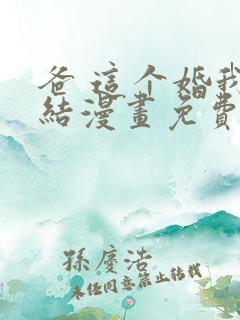 爸 這个婚我
結漫畫免費
孫慶浩
未任同意禁止转载